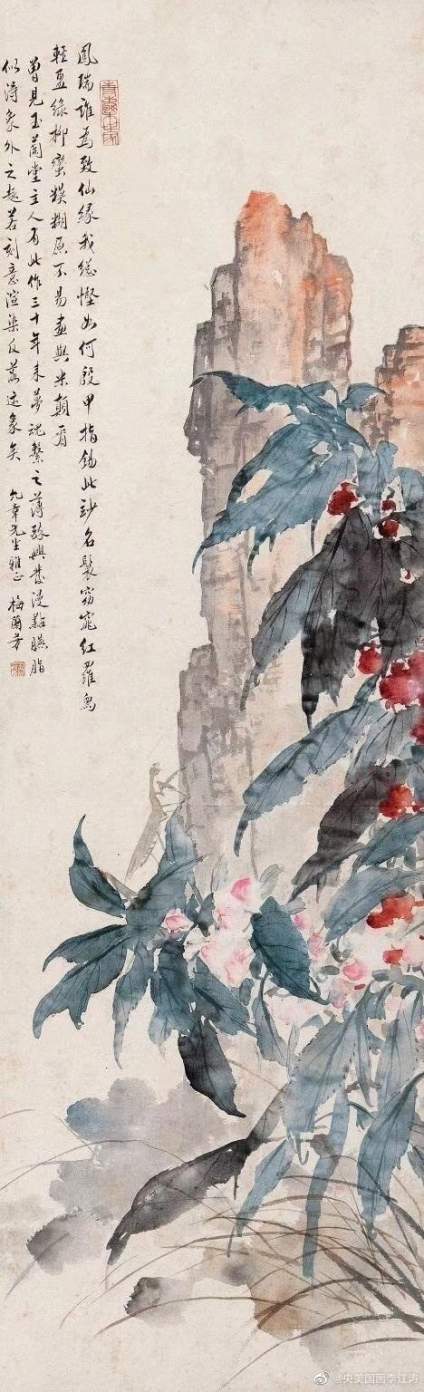 鳳瑞誰為致仙緣我總慳如何段甲指錫此鈔名鬟窈窕紅羅鳥
輕盈綠柳蠻模糊原不易畫與米顛看
曾見玉蘭堂主人有此作三十年來夢魂繫之薄醉興發漫點臙脂
似得象外之趣若刻意渲染反落迹象矣 九章先生雅正 梅蘭芳
@央美国画李江涛